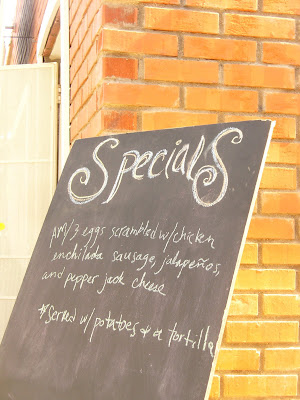 Specials
AM/3 eggs scrambled w/chicken
enchilada sausage, jalapeños,
and pepper jack cheese
*served w/potatoes + a tortilla